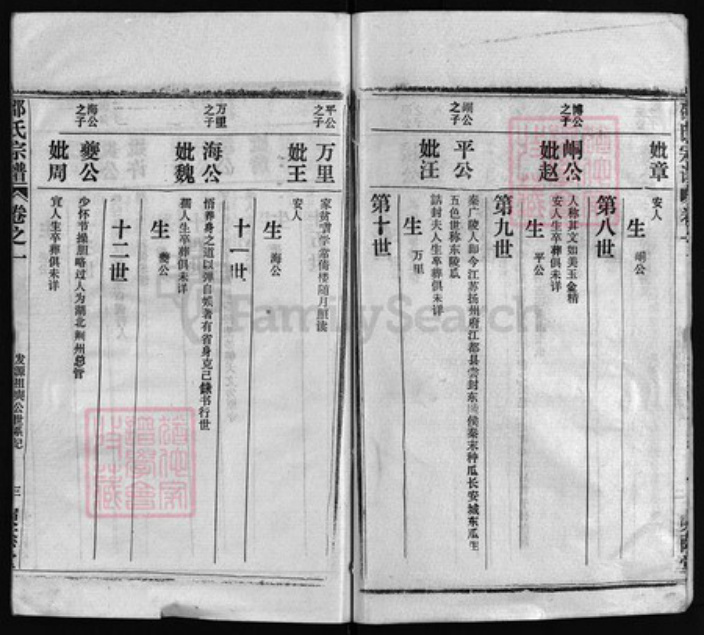 妣章
安人
生
峒公
第八世
博公之子
峒公
人称其文如美玉金精
妣赵
安人生卒葬俱未详
生
平公
第九世
峒公之子
平公
秦广陵人即今江苏扬州府江都县尝封东陵侯秦末种瓜长安城东瓜生
五色世称东陵瓜
妣汪
诰封夫人生卒葬俱未详
生
万里
第十世
平公之子
万里
家贫嗜学常倚楼随月照读
妣王
安人
生
海公
十一世
万里之子
海公
悟养身之道以弹自娱著有省身克己录书行世
妣魏
孺人生卒葬俱未详
生
夔公
十二世
海公之子
夔公
少怀节操胆略过人为湖北荆州总管
妣周
宜人生卒葬俱未详
邵氏宗谱
卷之一
发源祖奭公世系纪
三
FamilySearch